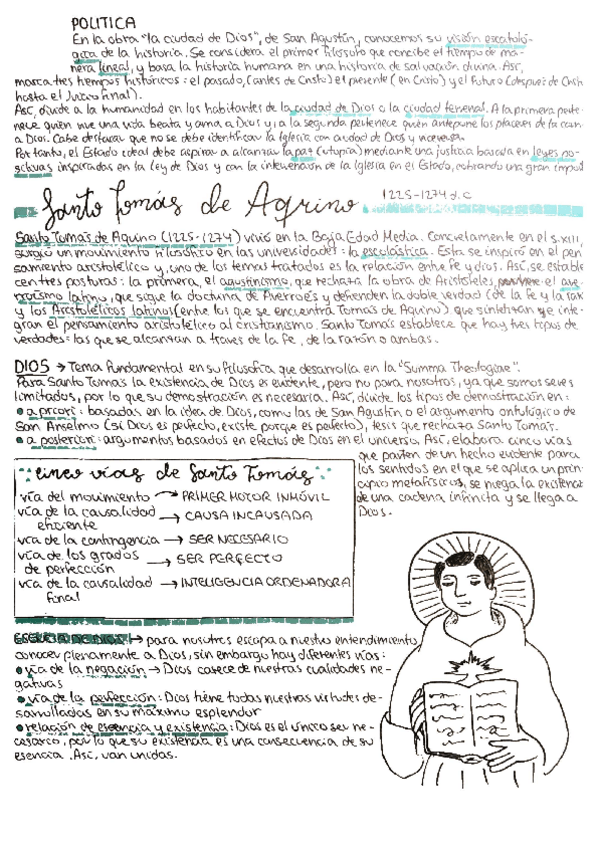 POLITICA
En la obra "la ciudad de Dios", de San Agustín, conocemos su visión escatoló-
gica de la historia. Se considera el primer filósofo que concibe el tiempo de ma-
nera lineal, y basa la historia humana en una historia de salvación divina. Así,
marca tres tiempos históricos: el pasado, (antes de Cristo) el presente (en Cristo) y el Futuro (después de Crist
hasta el Juicio final).
Así, divide a la humanidad en los habitantes de la ciudad de Dios o la ciudad terrenal. A la primera perte-
nece quien vive una vida beata y ama a Dios y, a la segunda pertenece quién antepone los placeres de la carn
a Dios. Cabe destacar que no se debe identificar la Iglesia con ciudad de Dios y viceversa.
Por tanto, el Estado ideal debe aspirar a alcanzar la paz (utopía) mediante una justicia basada en leyes po-
sitivas inspiradas en la Ley de Dios y con la intervención de la Iglesia en el Estado, cobrando una gran impost
Santo Tomás de Aquino 1225-1274 d.C
Santo Tomás de Aquino (1225-1274) vivió en la Baja Edad Media. Concretamente en el s.XIII,
surgió un movimiento filosófico en las universidades: la escolástica. Esta se inspiró en el pen
samiento aristotélico y, uno de los temas tratados es la relación entre Fe y dios. Así, se estable
cen tres posturas: la primera, el agustinismo, que rechaza la obra de Aristóteles, el ave-
rroísmo latino, que sigue la doctrina de Averroes y defienden la doble verdad (de la fe y la raz
y los Aristotélicos latinos (entre los que se encuentra Tomás de Aquino) que sintetizan e inte-
gran el pensamiento aristotélico al cristianismo. Santo Tomás establece que hay tres tipos de
verdades: las que se alcanzan a través de la Fe, de la razón o ambas.
DIOS → Tema fundamental en su filosofía que desarrolla en la "Summa Theologiae".
Para Santo Tomás la existencia de Dios es evidente, pero no para nosotros, ya que somos seres
limitados, por lo que su demostración es necesaria. Así, divide los tipos de demostración en:
• a priori: basadas en la idea de Dios, como las de San Agustín o el argumento ontológico de
San Anselmo (si Dios es perfecto, existe porque es perfecto), tesis que rechaza Santo Tomás.
• a posteriori: argumentos basados en efectos de Dios en el universo. Así, elabora cinco vías
que parten de un hecho evidente para
los sentidos en el que se aplica un prin-
cipio metafísico, se niega la existencia
de una cadena infinita y se llega a
Dios.
cinco vías de Santo Tomás
vía del movimiento → PRIMER MOTOR INMÓVIL
vía de la causalidad
eficiente → CAUSA INCAUSADA
vía de la contingencia → SER NECESARIO
vía de los grados
de perfección → SER PERFECTO
vía de la causalidad → INTELIGENCIA ORDENADORA
final
ESENCIA DE DIOS → para nosotros escapa a nuestro entendimiento
conocer plenamente a Dios, sin embargo hay diferentes vías:
• vía de la negación → Dios carece de nuestras cualidades ne-
gativas
• vía de la perfección: Dios tiene todas nuestras virtudes de-
sarrolladas en su máximo esplendor
• relación de esencia y existencia: Dios es el único ser ne-
cesario, por lo que su existencia es una consecuencia de su
esencia. Así, van unidas.